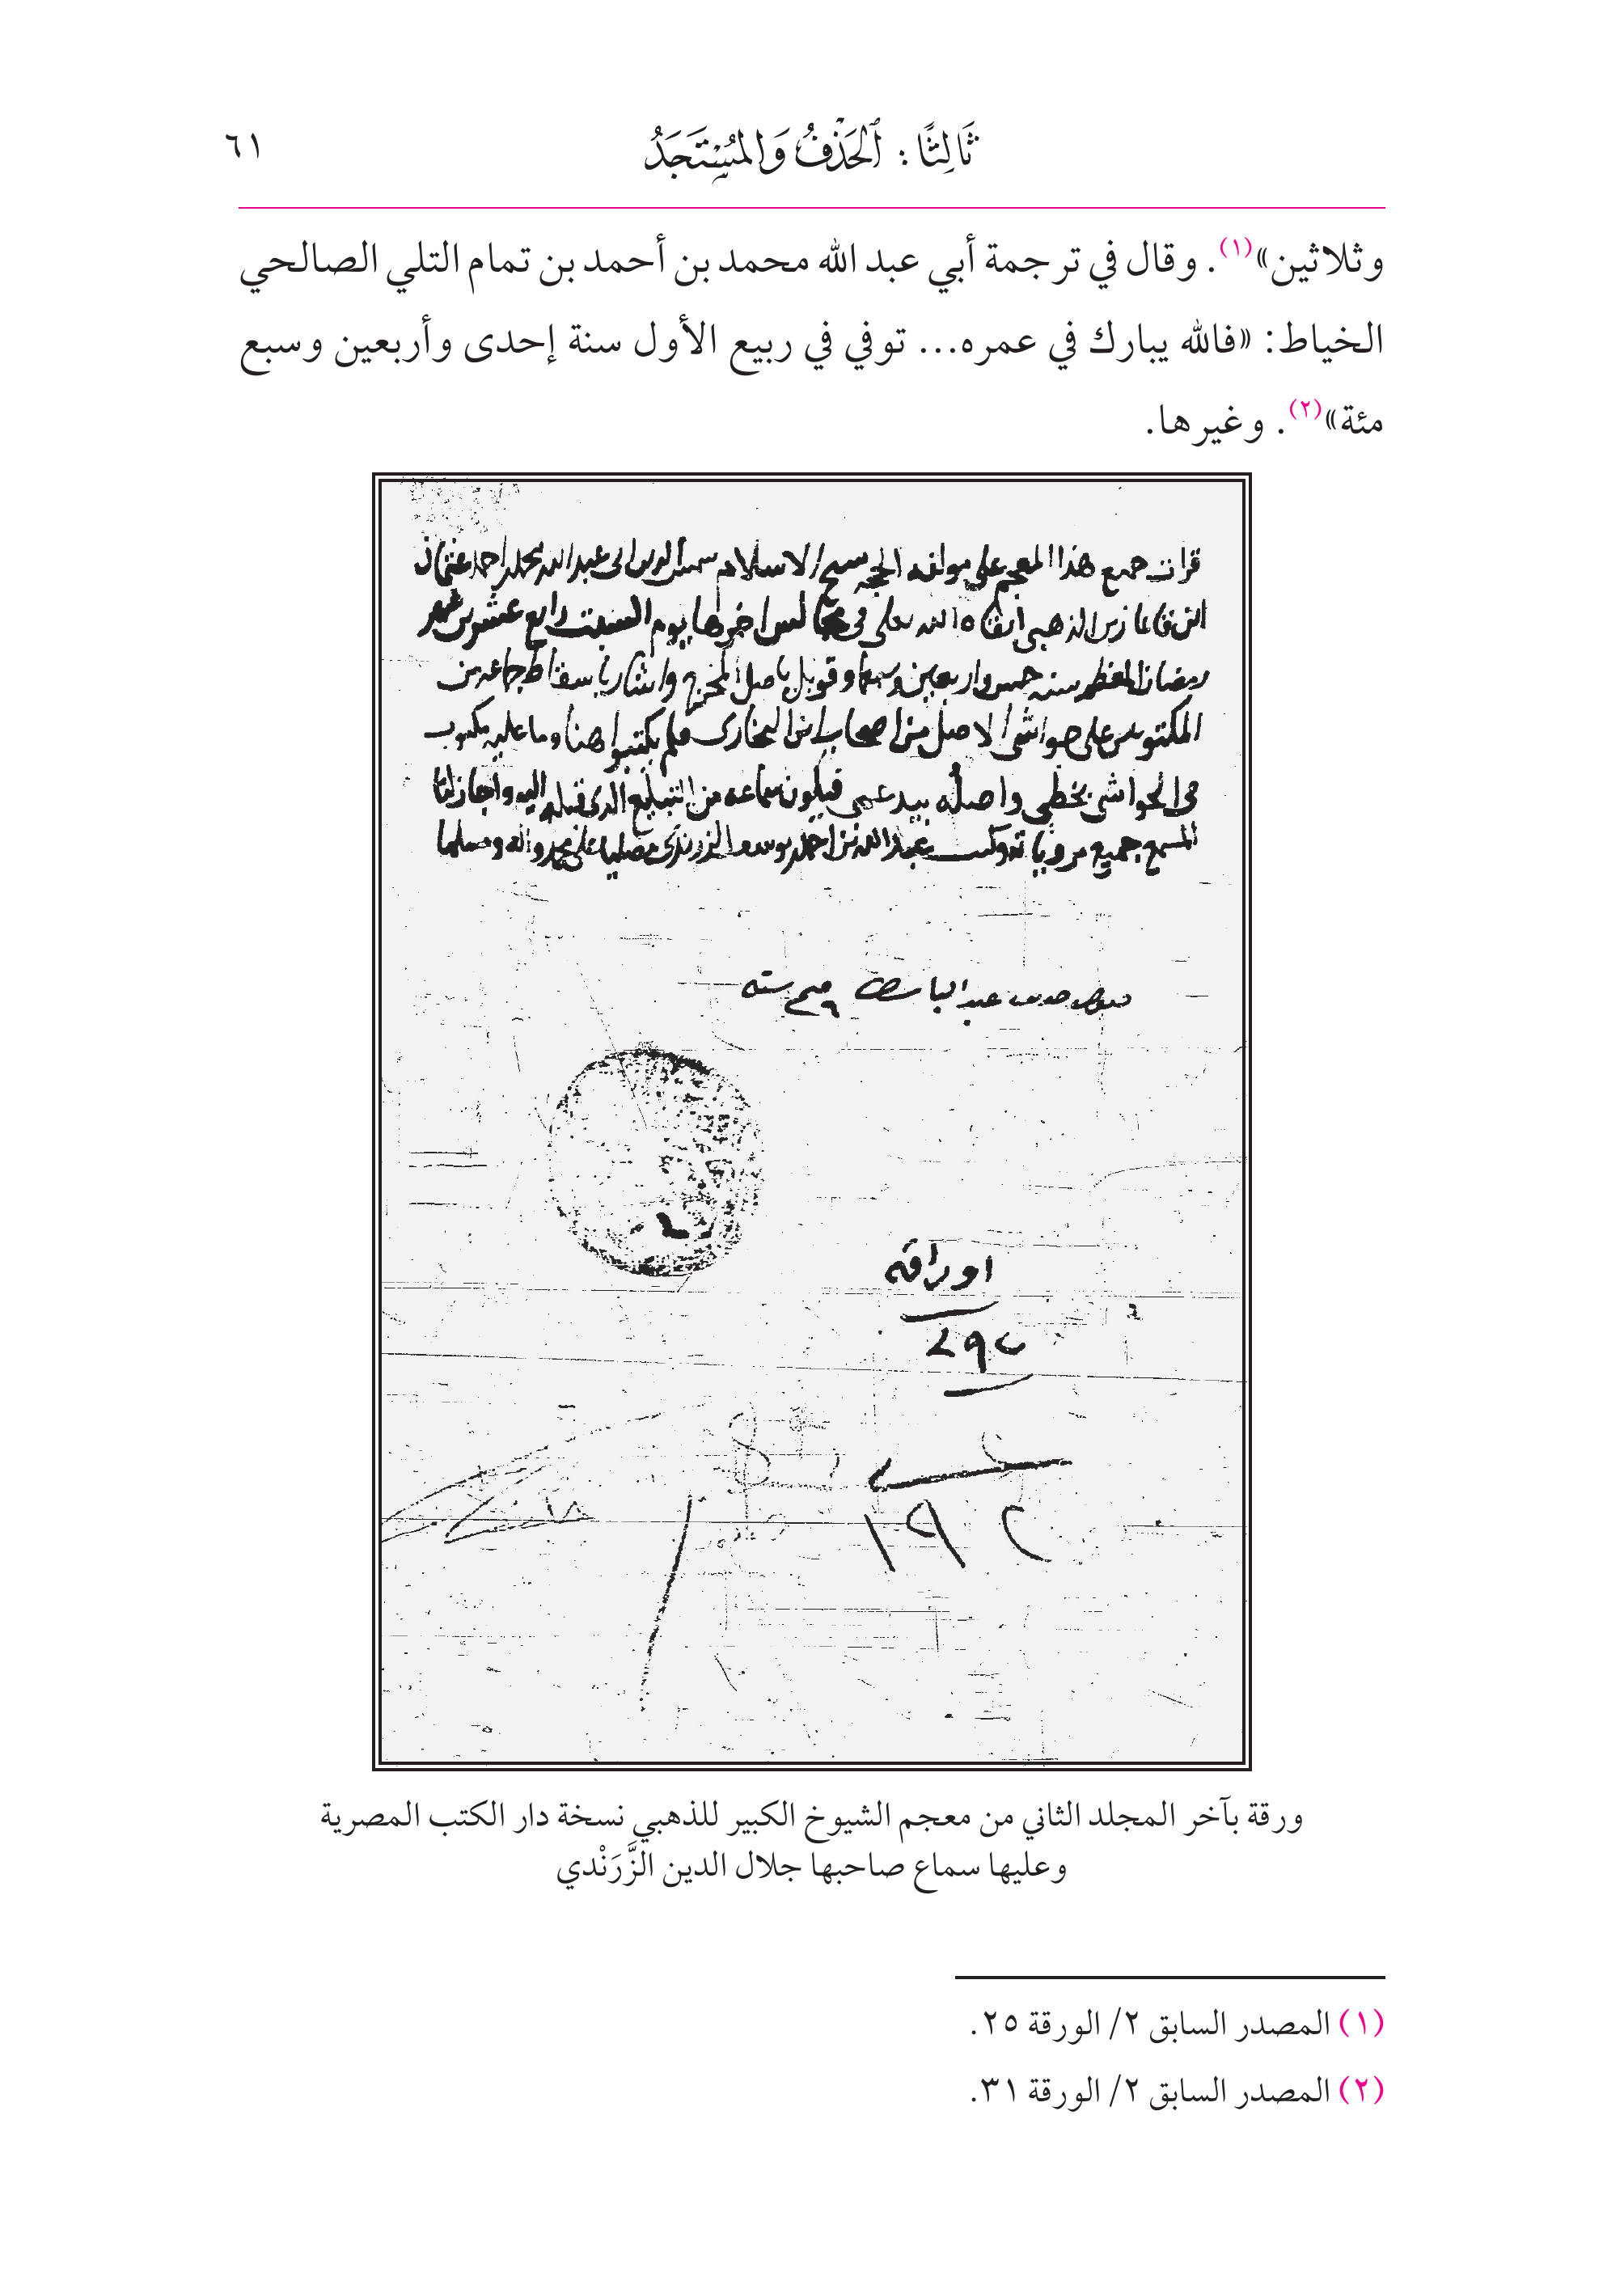 ثَالِثًا : ٱلْحَذْفُ وَالمُسْتَجَدُ
٦١
وثلاثين»(١). وقال في ترجمة أبي عبد الله محمد بن أحمد بن تمام التلي الصالحي
الخياط: «فالله يبارك في عمره... توفي في ربيع الأول سنة إحدى وأربعين وسبع
مئة»(٢). وغيرها.
قرات جميع هذا المعجم على مولفه الحجه سيخ الاسلام سمس الدين ابى عبد الله محمد بن احمد بن عثمان
الذهبى ابقاه الله تعلى فى مجالس اخرها يوم السبت رابع عشرين شهر
رمضان المعظم سنه خمس واربعين وسبعمايه وقوبل باصل المخرج واشار باسقاط جماعه من
المكتوبين على حواشى الاصل من اصحاب ابن البخارى فلم يكتبوا هنا وما عليه مكتوب
فى الحواشى بخطى واصله بيد عمى فيكون سماعه من التبليغ الذى قبله اليه واجاز لنا
المسمع جميع مروياته وكتب عبد الله بن احمد بن يوسف الزرندى مصليا على محمد واله ومسلما
عبد الباسط
اوراقه
١٩٢
ورقة بآخر المجلد الثاني من معجم الشيوخ الكبير للذهبي نسخة دار الكتب المصرية
وعليها سماع صاحبها جلال الدين الزَّرَنْدي
(١) المصدر السابق ٢/ الورقة ٢٥.
(٢) المصدر السابق ٢/ الورقة ٣١.